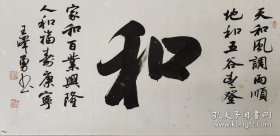 天和風調雨順
地和五谷豐登
和
家和百業興隆
人和福壽康寧